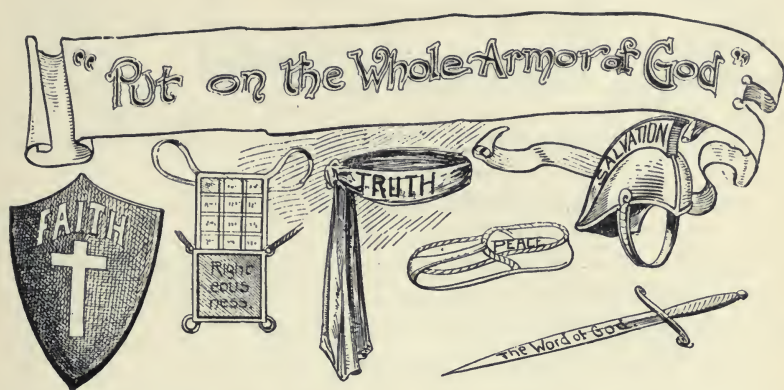 "Put on the Whole Armor of God"
FAITH
Right
eous
ness.
TRUTH
PEACE
SALVATION
The Word of God